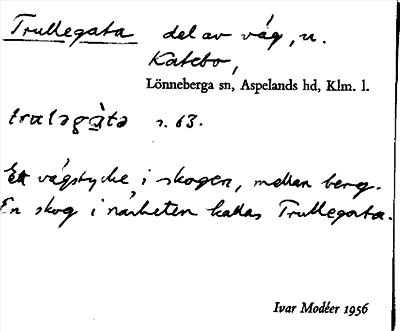 Trullegata del av väg, n.
Katebo,
Lönneberga sn, Aspelands hd, Klm. l.
s. 63.
Ett vägstycke i skogen, mellan berg.
En skog i närheten kallas Trullegata.
Ivar Modéer 1956